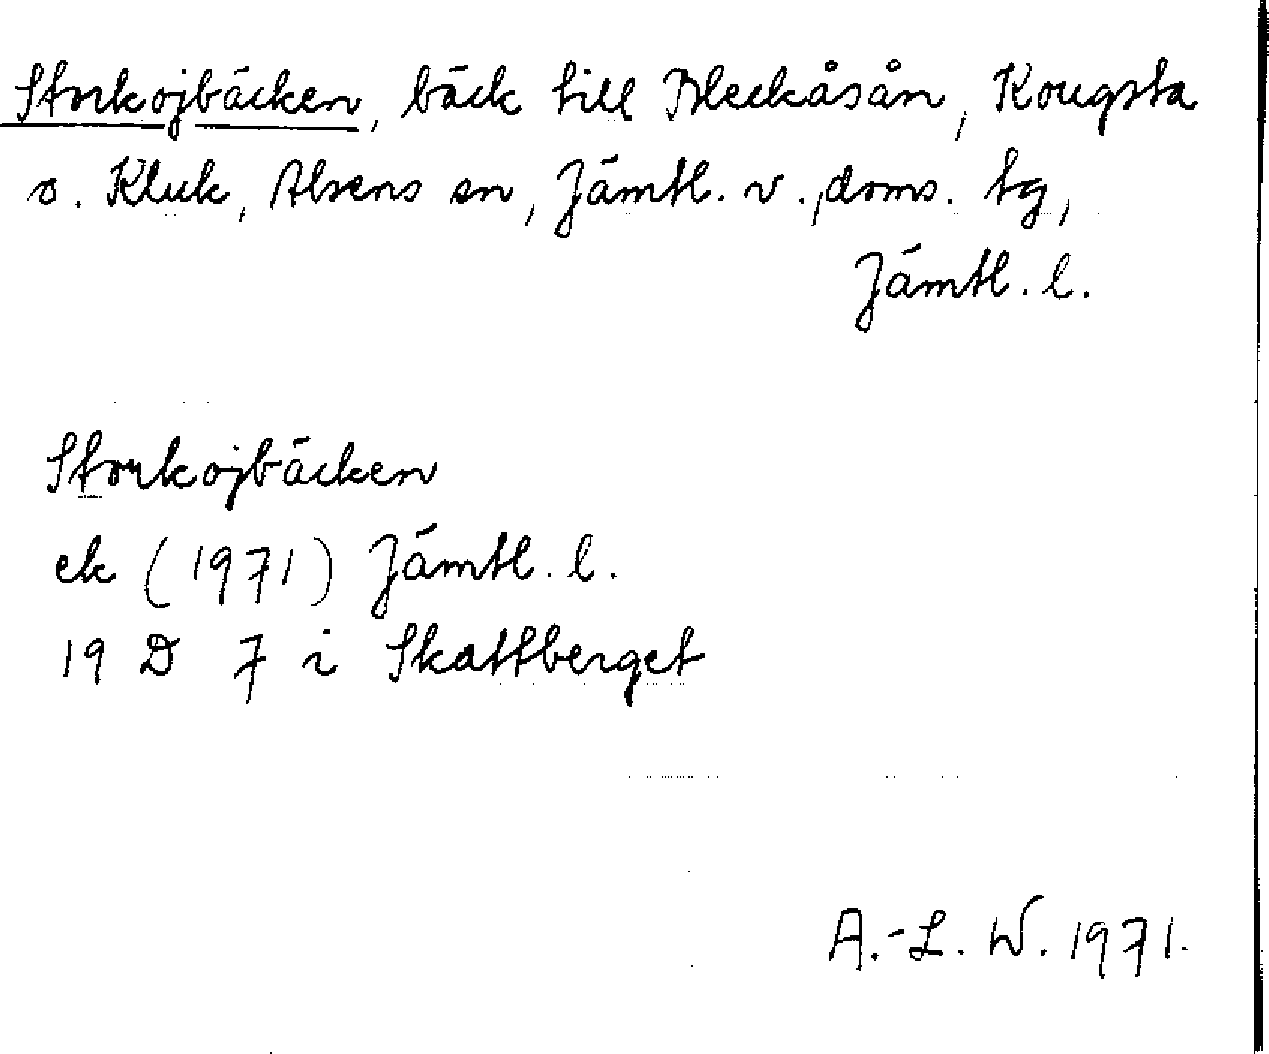 Storkojbäcken, bäck till Bleckåsån, Kougsta
o. Kluk, Alsens sn, Jämtl. v., doms. tg,
Jämtl. l.
Storkojbäcken
ek (1971) Jämtl. l.
19 D 7 i Skattberget
A.-L. W. 1971.